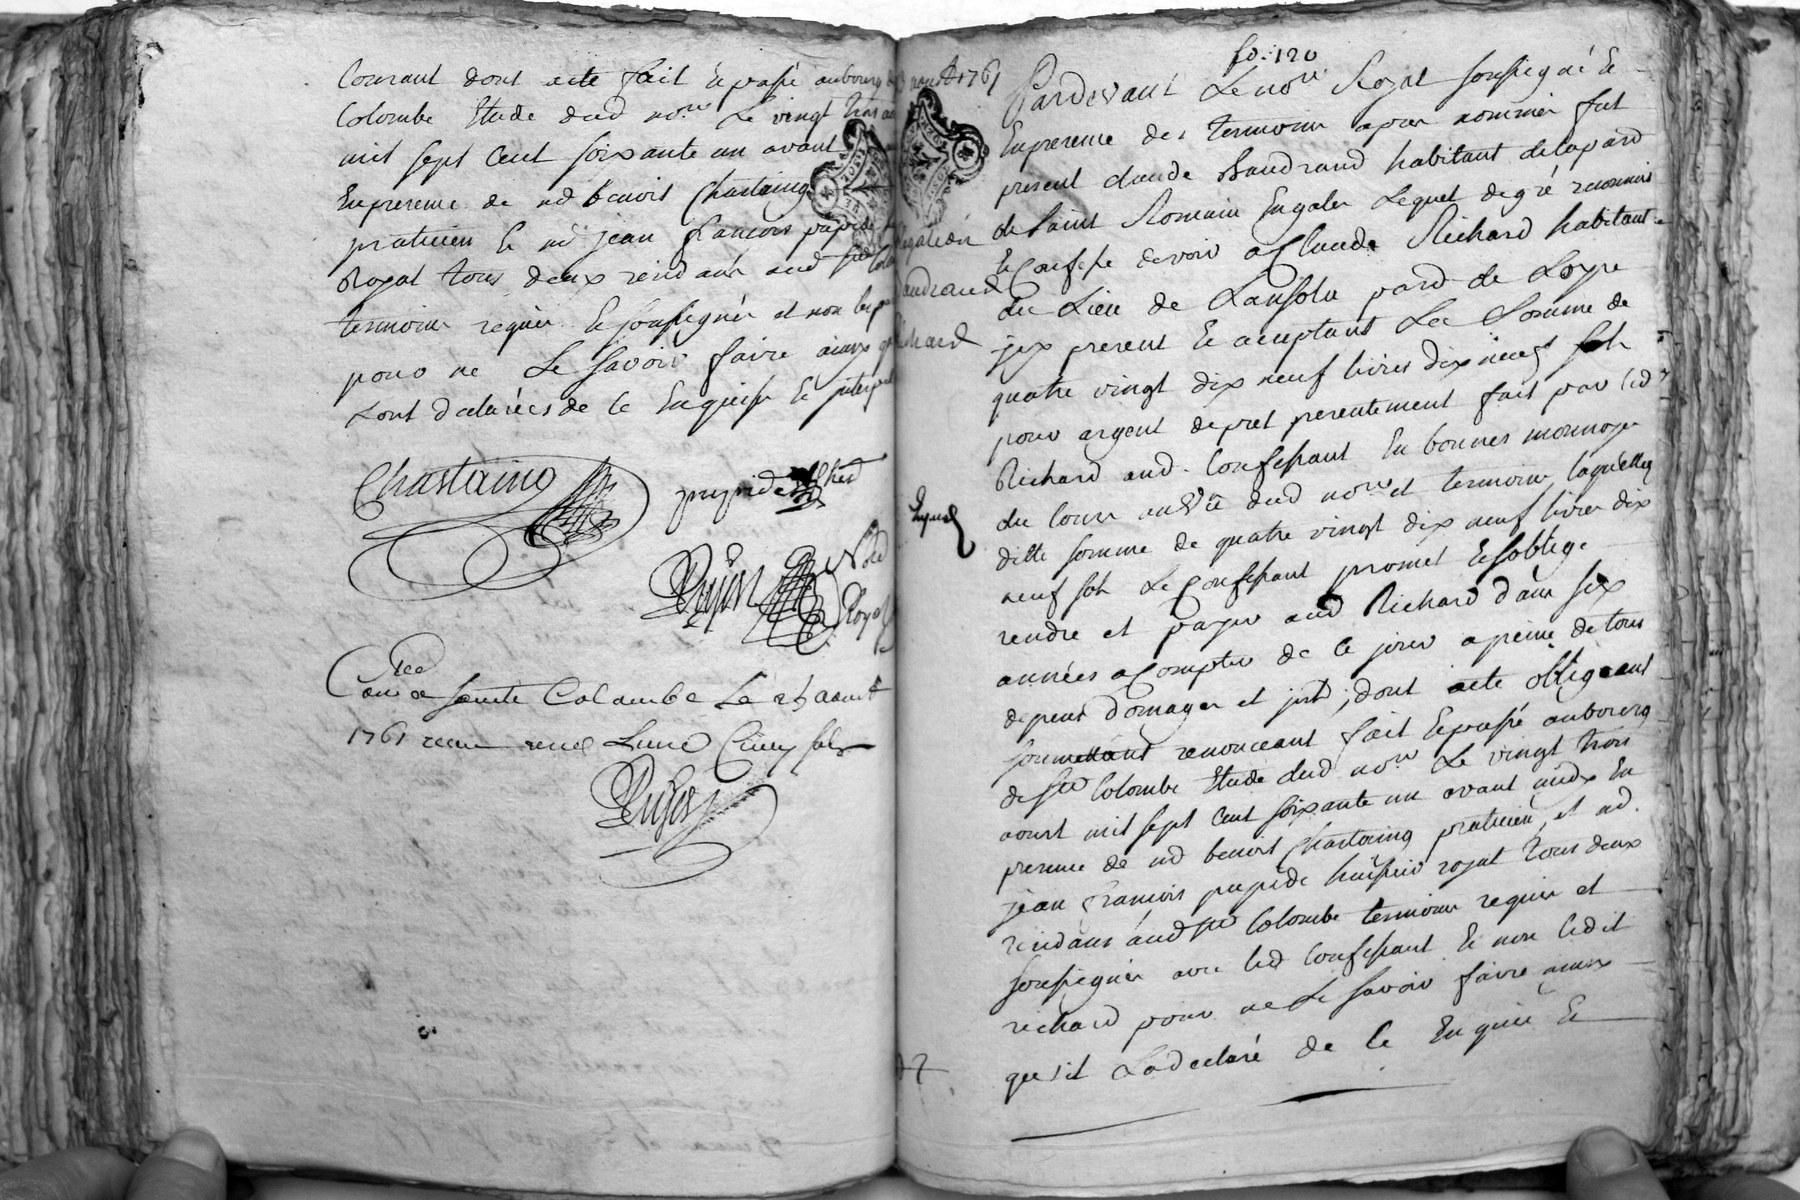 Courant dont acte fait Et passé aubourg
Colombe Etude dud no.re Le vingt trois
mil sept Cent soixante un avant
En presence de md benoit Chastaing
praticien Et md jean françois papide
Royal tous deux residans aud Ste
temoins requis Et soussignés et non les
pour ne Le savoir faire ainsy
Lont declarées de Ce Enquises Et
Chastaing
papide
Nore
Royal
Con.lee a sainte Colombe Le 25 aoust
1761 reçu
fo. 120
aoust 1761
Pardevant Le no.re Royal soussigné Et
En presence des temoins apres nommés fut
present claude Baudrand habitant de la par.d
de Saint Romain Lequel de gré reconnois
obligation
Et Confesse devoir a Claude Richard habitant
Baudrand
du Lieu de par.d de
Richard
icy present Et acceptant La Somme de
quatre vingt dix neuf livres dix neuf sols
pour argent de pret presentement fait par led
Richard aud. Confessant En bonnes monnoyes
du Cours dud no.re et temoins, laquelle
ditte somme de quatre vingt dix neuf livres dix
neuf sols Le Confessant promet Et soblige
rendre et payer aud Richard dans six
années a Compter de Ce jour a peine de tous
depens domages et jnts; dont acte obligeant
soumettant renonceant fait Et passé aubourg
de Ste Colombe Etude dud no.re Le vingt trois
aoust mil sept Cent soixante un avant midy En
presence de md benoit Chastaing praticien, et md.
jean françois papide huissier royal tous deux
residans aud Ste Colombe temoins requis et
soussignés avec led Confessant Et non Ledit
richard pour ne Le savoir faire ainsy
quil La declaré de Ce Enquis Et